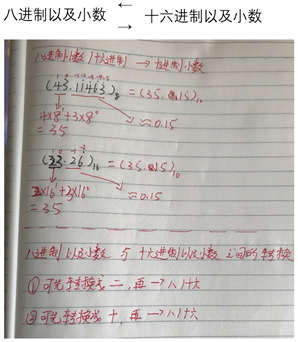 八进制以及小数 ← → 十六进制以及小数
八进制小数/十六进制 → 十进制小数
(43.11463)₈ = (35.15)₁₀
4×8¹+3×8⁰ ≈0.15
= 35
(23.26)₁₆ = (35.15)₁₀
2×16¹+3×16⁰ ≈0.15
= 35
八进制以及小数 与 十六进制以及小数 之间的转换
① 可先转换成二,再→八/十六
② 可先转换成十,再→八/十六